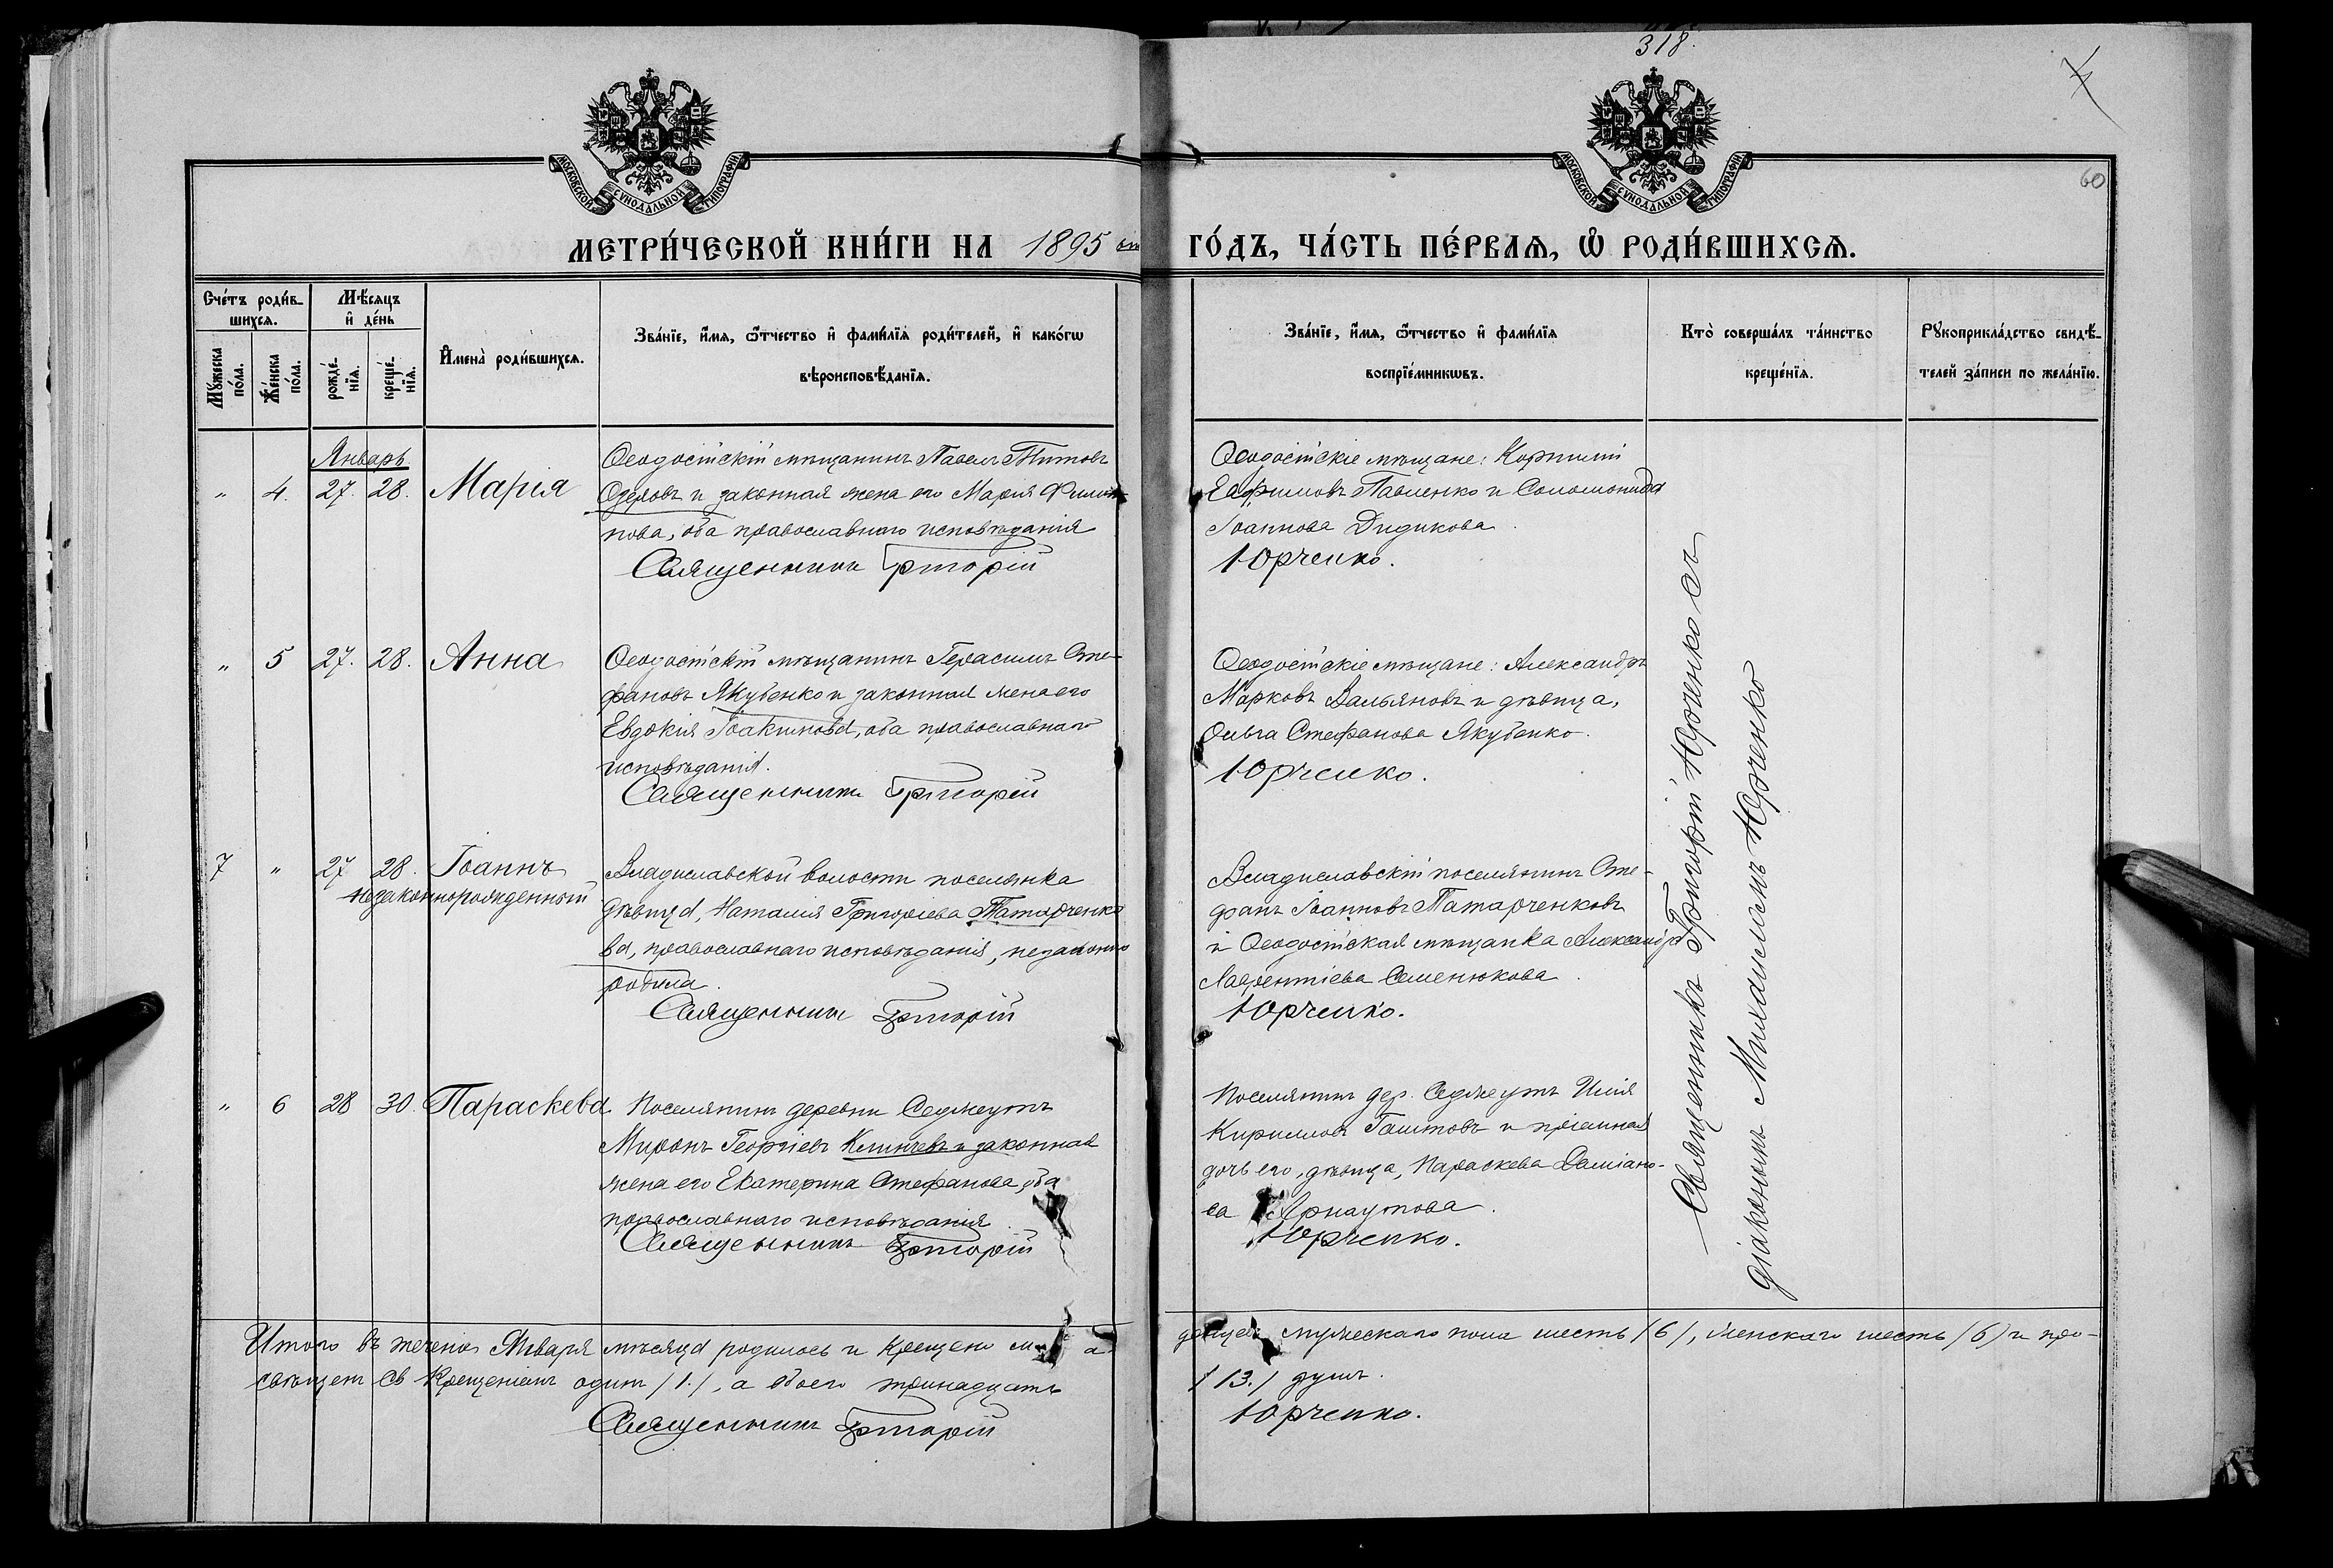 318.
7
60
МОСКОВСКОЙ СѴНОДАЛЬНОЙ ТИПОГРАФІИ
МОСКОВСКОЙ СѴНОДАЛЬНОЙ ТИПОГРАФІИ
МЕТРИ́ЧЕСКОЙ КНИ́ГИ НА 1895
ГО́ДЪ, ЧА́СТЬ ПЕ́РВАѦ, Ѽ РОДИ́ВШИХСѦ.
Сче́тъ роди́в-
шихсѧ.
Мꙋ́жеска по́ла.
Же́нска по́ла.
Мѣ́сѧцъ
и҆ де́нь
рожде́-
нїѧ.
креще́-
нїѧ.
И҆мена̀ роди́вшихсѧ.
Зва́нїе, и҆́мѧ, ѻ҆́тчество и҆ фами́лїѧ роди́телей, и҆ како́гѡ
вѣроисповѣ́данїѧ.
Зва́нїе, и҆́мѧ, ѻ҆́тчество и҆ фами́лїѧ
воспрїе́мникѡвъ.
Кто̀ соверша́лъ та́инство
креще́нїѧ.
Рꙋкоприкла́дство свидѣ́-
телей за́писи по жела́нїю.
Январь
" 4. 27. 28. Марія
Ѳеодосійскій мѣщанинъ Павелъ Титовъ
и законная жена его Марія Филип-
пова, оба православнаго исповѣданія
Священникъ Григорій
Ѳеодосійскіе мѣщане: Корнилій
Евфимовъ Павленко и Соломонида
Іоаннова Дидикова.
Юрченко.
" 5 27. 28. Анна
Ѳеодосійскій мѣщанинъ Герасимъ Сте-
фановъ Якубенко и законная жена его
Евдокія Іоакимова, оба православнаго
исповѣданія.
Священникъ Григорій
Ѳеодосійскіе мѣщане: Александръ
Марковъ Вальяновъ и дѣвица,
Ольга Стефанова Якубенко.
Юрченко.
7 " 27 28. Іоаннъ
незаконнорожденный
Владиславской волости поселянка
дѣвица, Наталія Григоріева Татарченко-
ва, православнаго исповѣданія, незаконно
родила.
Священникъ Григорій
Владиславскій поселянинъ Сте-
фанъ Іоанновъ Татарченковъ
и Ѳеодосійская мѣщанка Александра
Лаврентіева Семенюкова.
Юрченко.
" 6 28 30. Параскева
Поселянинъ деревни Седжеутъ
Миронъ Георгіевъ Клинчевъ и законная
жена его Екатерина Стефанова, оба
православнаго исповѣданія.
Священникъ Григорій
Поселянинъ дер. Седжеутъ Илія
Кирилловъ Гаитовъ и пріемная
дочь его, дѣвица, Параскева Даміано-
ва Арнаутова.
Юрченко.
Священникъ Григорій Юрченко съ
діакономъ Михаиломъ Юрченко
Итого въ теченіе Января мѣсяца родилось и крещено
мужескаго пола шесть /6/, женскаго шесть /6/ и про-
свѣщенъ Св. Крещеніемъ одинъ /1./, а обоего тринадцать
/13./ душъ.
Священникъ Григорій
Юрченко.